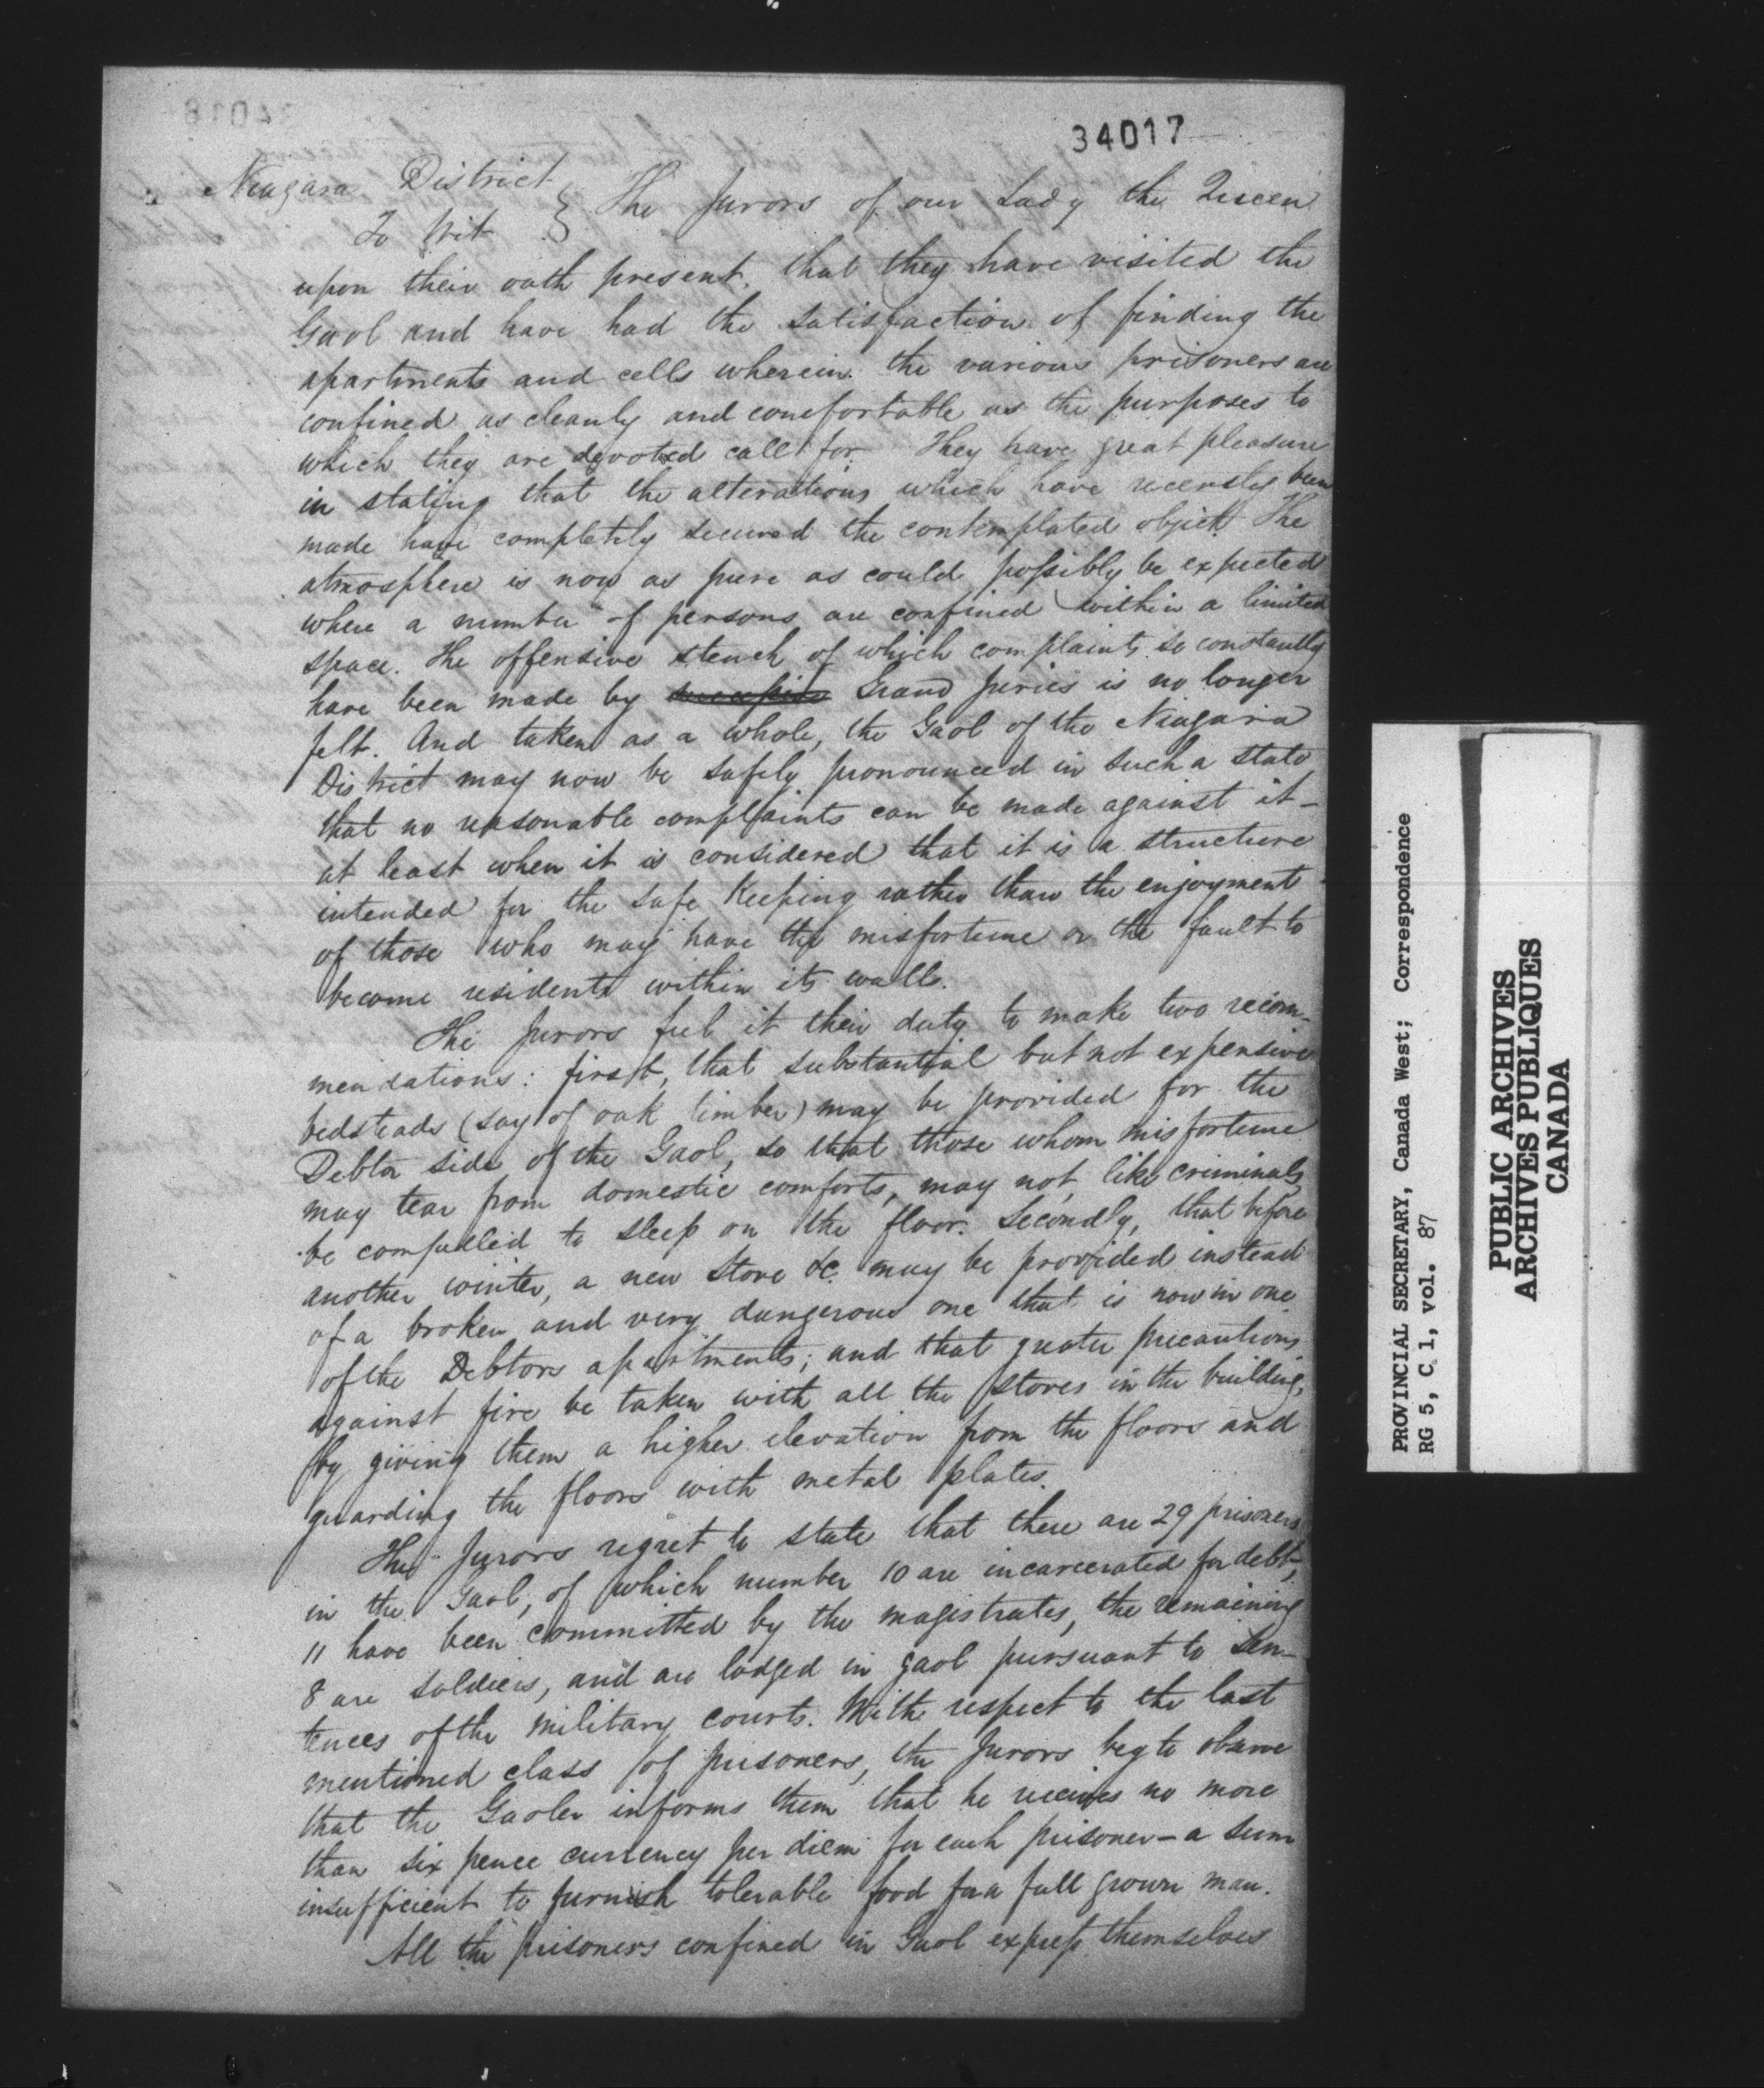 34017
Niagara District } The Jurors of our Lady the Queen
To Wit
upon their oath present, that they have visited the
Gaol and have had the satisfaction of finding the
apartments and cells wherein the various prisoners are
confined as cleanly and comfortable as the purposes to
which they are devoted call for. They have great pleasure
in stating that the alterations which have recently been
made have completely secured the contemplated object. The
atmosphere is now as pure as could possibly be expected
where a number of persons are confined within a limited
space. The offensive stench of which complaints so constantly
have been made by successive Grand Juries is no longer
felt. And taken as a whole, the Gaol of the Niagara
District may now be safely pronounced in such a state
that no reasonable complaints can be made against it -
at least when it is considered that it is a structure
intended for the safe keeping rather than the enjoyment
of those who may have the misfortune or the fault to
become residents within its walls.
The Jurors feel it their duty to make two recom-
mendations: first, that substantial but not expensive
bedsteads (say of oak timber) may be provided for the
Debtor side of the Gaol, so that those whom misfortune
may tear from domestic comforts, may not, like criminals,
be compelled to sleep on the floor. Secondly, that before
another winter, a new stove &c. may be provided instead
of a broken and very dangerous one that is now in one
of the Debtors apartments; and that greater precautions
against fire be taken with all the stoves in the building,
by giving them a higher elevation from the floors and
guarding the floors with metal plates.
The Jurors regret to state that there are 29 prisoners
in the Gaol, of which number 10 are incarcerated for debt,
11 have been committed by the magistrates, the remaining
8 are soldiers, and are lodged in gaol pursuant to sen-
tences of the military courts. With respect to the last
mentioned class of prisoners, the Jurors beg to observe
that the Gaoler informs them that he receives no more
than six pence currency per diem for each prisoner - a sum
insufficient to furnish tolerable food for a full grown man.
All the prisoners confined in Gaol express themselves
PROVINCIAL SECRETARY, Canada West; Correspondence
RG 5, C 1, vol. 87
PUBLIC ARCHIVES
ARCHIVES PUBLIQUES
CANADA